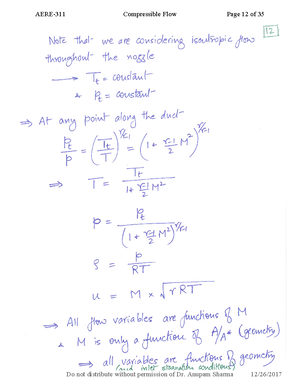 AERE-311 Compressible Flow Page 12 of 35
12
Note that we are considering isentropic flow
throughout the nozzle
⟶ T_t = constant
& P_t = constant
⇒ At any point along the duct
P_t/P = (T_t/T)^(γ/γ-1) = (1 + (γ-1)/2 M²)^(γ/γ-1)
⇒ T = T_t / (1 + (γ-1)/2 M²)
p = P_t / (1 + (γ-1)/2 M²)^(γ/γ-1)
ρ = p/RT
u = M × √(γRT)
⇒ All flow variables are functions of M
& M is only a function of A/A* (geometry)
⇒ all variables are functions of geometry
(and inlet stagnation conditions)
Do not distribute without permission of Dr. Anupam Sharma 12/26/2017